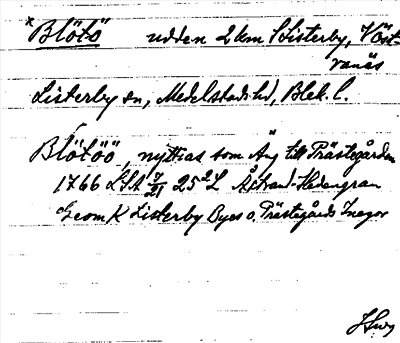 *Blötö udden 2 km S Listerby, V Öst-
ranäs
Listerby sn, Medelstads hd, Blek. l.
Blötöö, nyttias som Äng till Prästegården
1766 LSA 25 2 L Åstrand-Hedengran
Geom K Listerby Byes o. Prästegårds Inegor